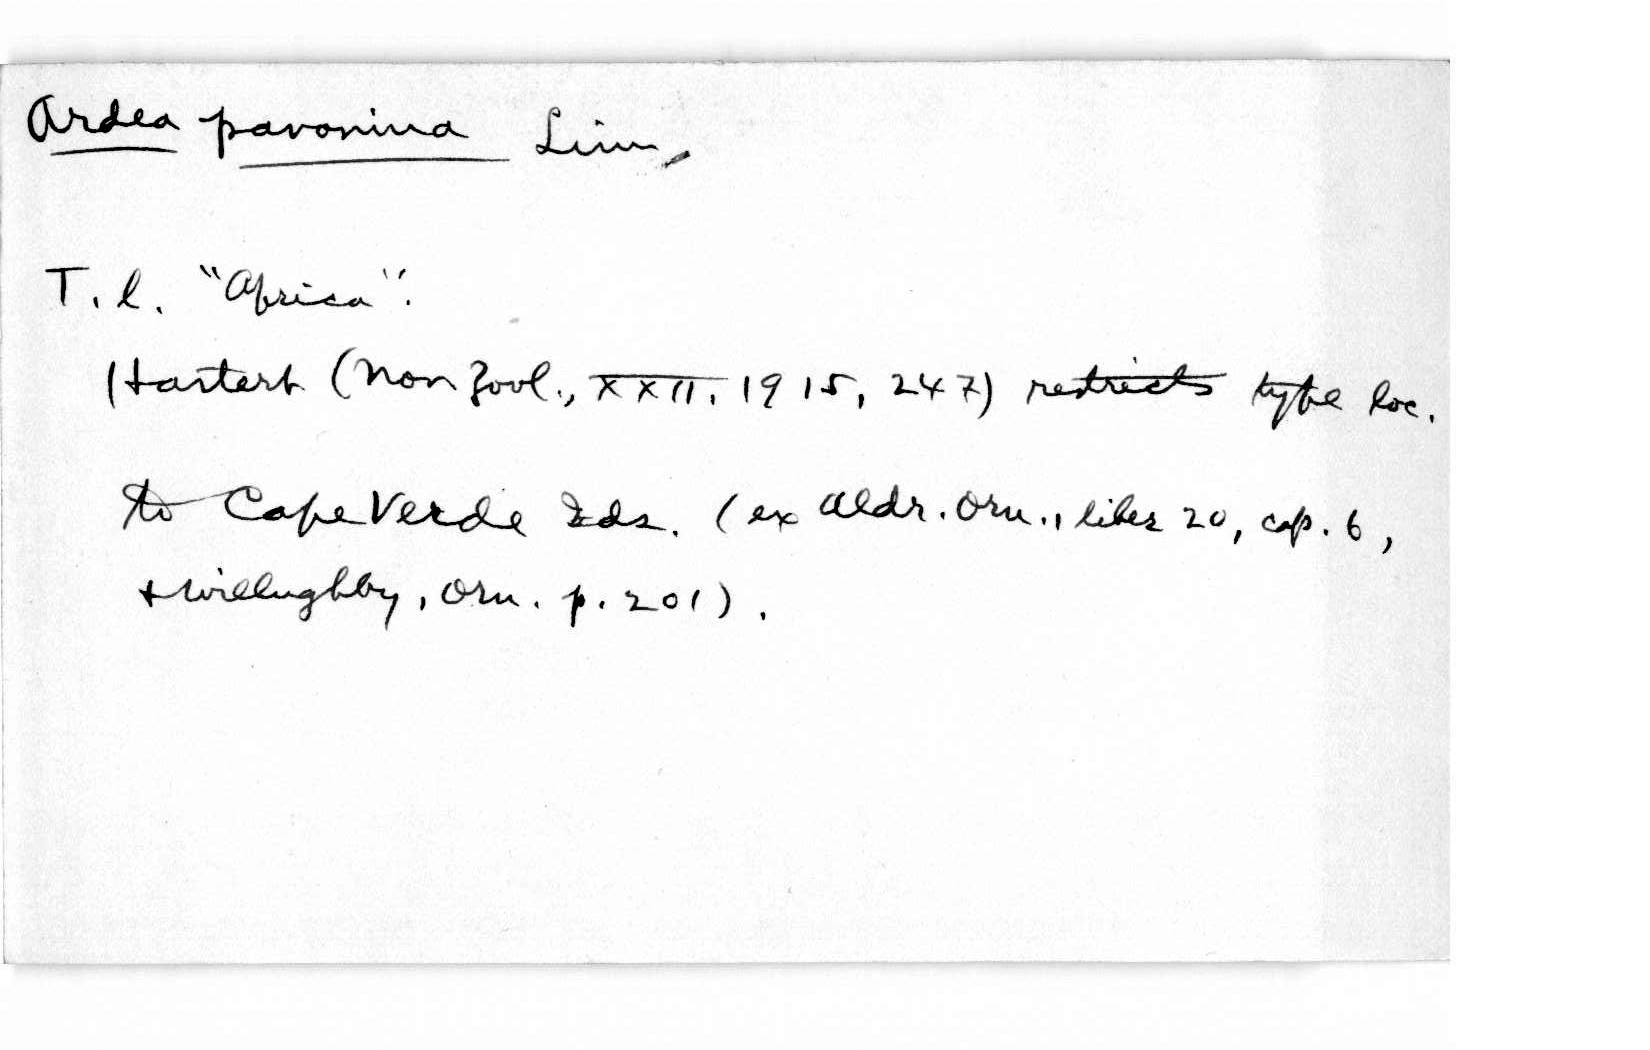 Ardea pavonina Linn.
T. l. "Africa".
Hartert (Nov Zool., XXII, 1915, 247) restricts type loc.
to Cape Verde Ids. (ex Aldr. Orn., liber 20, cap. 6,
+ Willughby, Orn. p. 201).